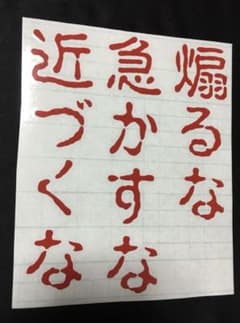 煽るな
急かすな
近づくな